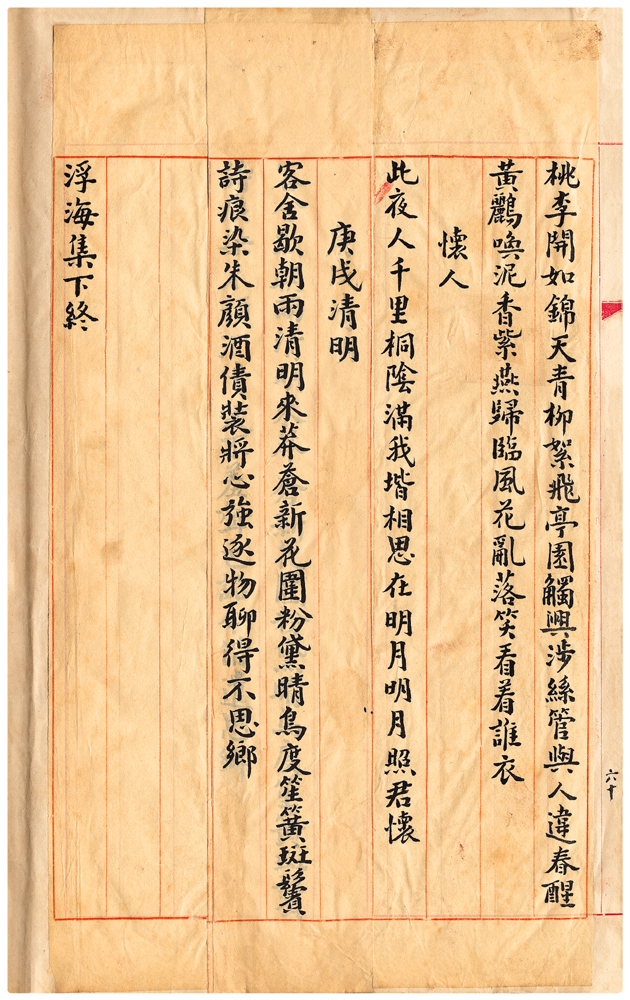 桃李開如錦天青柳絮飛亭園觸興涉絲管與人違春醒
黃鸝喚泥香紫燕歸臨風花亂落笑看着誰衣
懷人
此夜人千里桐陰滿我堦相思在明月明月照君懷
庚戌清明
客舍歇朝雨清明來莽蒼新花圍粉黛晴鳥度笙簧斑鬢
詩痕染朱顏酒債裝將心強逐物聊得不思鄉
浮海集下終
六十